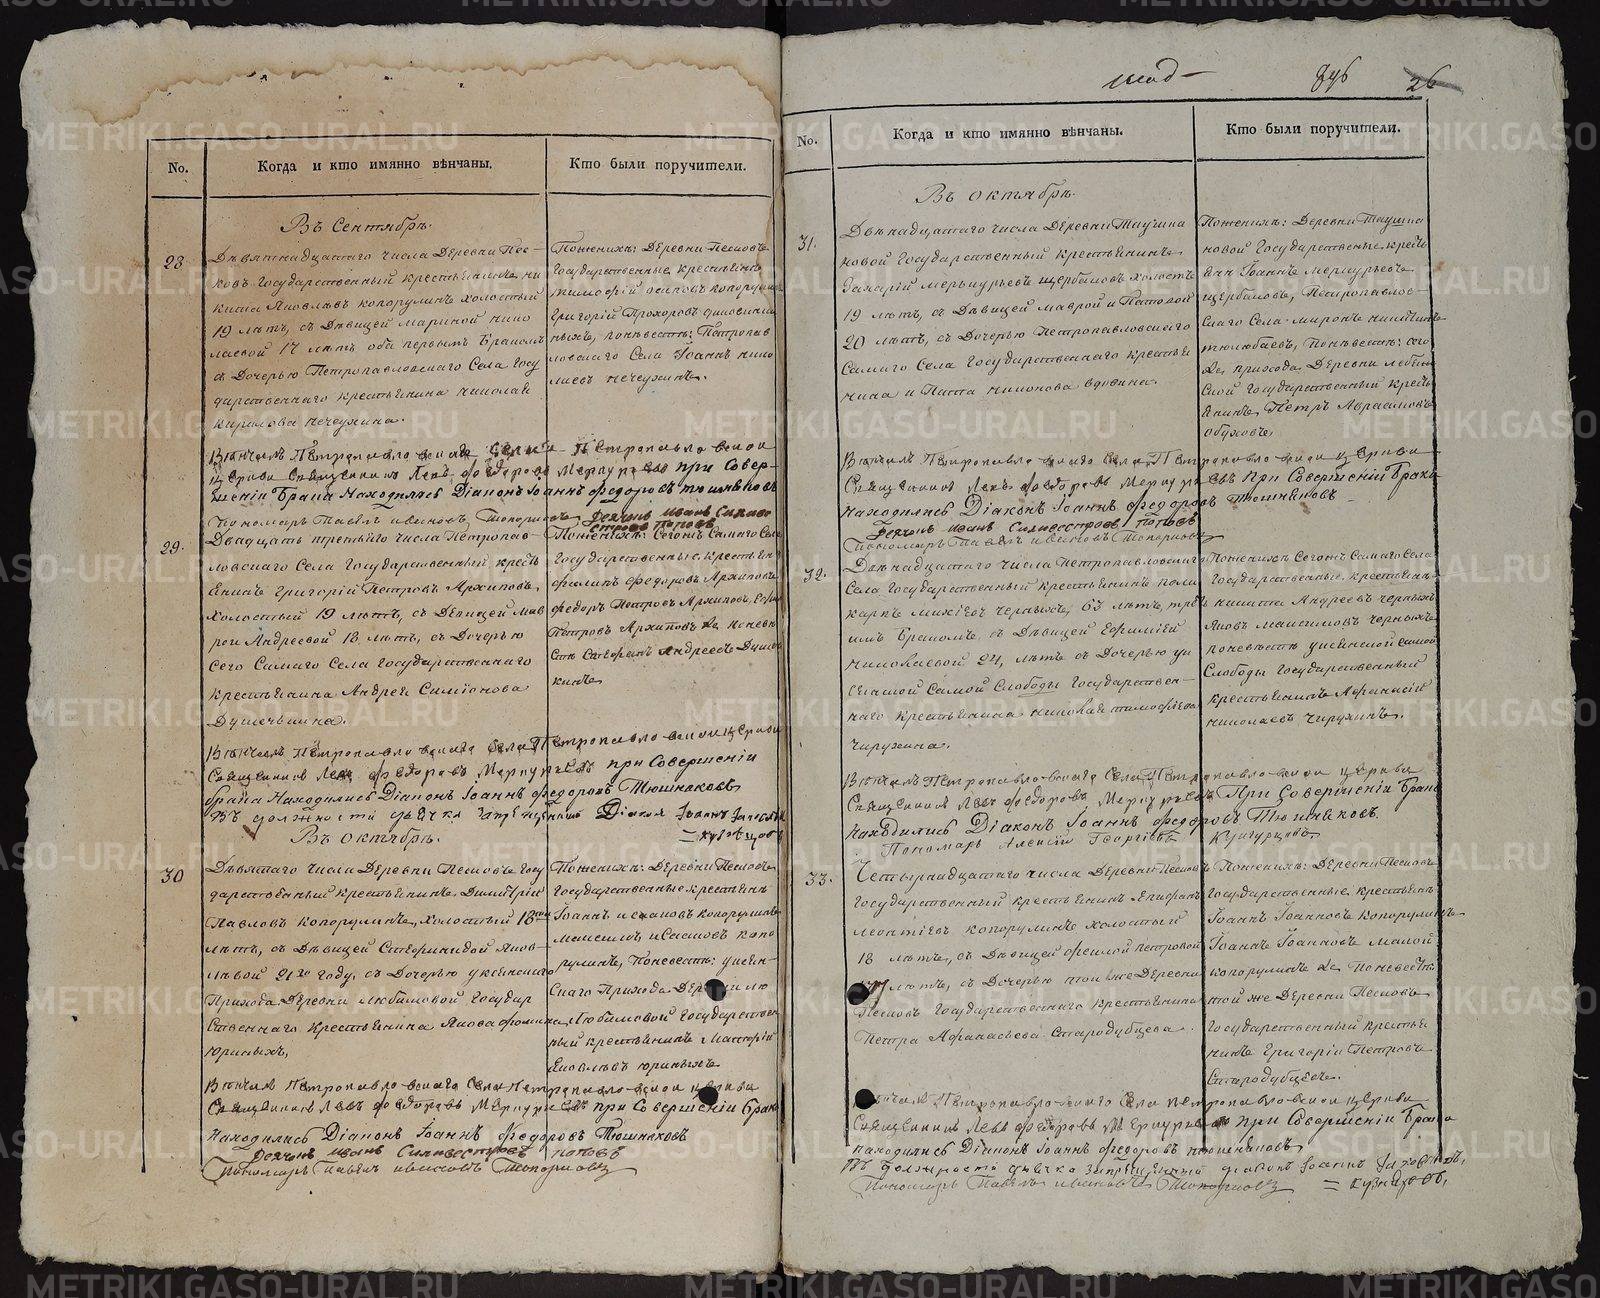 No.
Когда и кто имянно вѣнчаны.
Кто были поручители.
Въ Сентябрѣ.
28
Девятнадцатаго числа Деревни Пес-
ковъ Государственный крестьянинъ ни
кита Яковлевъ копорулинъ холостый
19 лѣтъ, съ Дѣвицей Мариной нико
лаевой 17 лѣтъ оба первымъ Бракомъ
съ Дочерью Петропавловскаго Села Госу
дарственнаго крестьянина николая
кирилова нечеухина.
Поженихѣ: Деревни Песковъ
Государственные крестьяне
тимофій осиповъ копорулинъ
Григорій Прохоровъ
поневѣстѣ: Петропав
ловскаго Села Іоаннъ нико
лаевъ нечеухинъ.
Вѣнчалъ Петропавловскаго Села Петропавловской
церкви Священникъ Левъ Федоровъ Меркурьевъ при Совер-
шеніи Брака Находились Діаконъ Іоаннъ Федоровъ Тюшняковъ
Пономарь Павелъ ивановъ Топорковъ Дьячекъ иванъ Силиве
стровъ Поповъ
29.
Двадцать третьяго числа Петропав-
ловскаго Села Государственный кресть
янинъ Григорій Петровъ Архиповъ
Холостый 19 лѣтъ, съ Дѣвицей Мав
рой Андреевой 18 лѣтъ, съ Дочерью
Сего Самаго Села Государственнаго
крестьянина Андрея Симіонова
Душечкина.
Поженихѣ: Сегожъ Самаго Села
Государственные крестьяне
филипъ федоровъ Архиповъ
федоръ Петровъ Архиповъ,
Петровъ Архиповъ же поневѣ
стѣ Стефанъ Андреевъ Душеч
кинъ
Вѣнчалъ Петропавловскаго Села Петропавловской церкви
Священникъ Левъ Федоровъ Меркурьевъ при Совершеніи
брака Находились Діаконъ Іоаннъ Федоровъ Тюшняковъ
Въ должности дьячка запрещенный Діаконъ Іоаннъ
= кузнецовъ
Въ октябрѣ.
30
Девятаго числа Деревни Песковъ Госу
дарственный крестьянинъ Димитрій
Павловъ копорулинъ, холостый 18ти
лѣтъ, съ Дѣвицей Стефанидой Яков-
левой 21го году, съ Дочерью уксянскаго
Прихода Деревни любимовой Государ
ственнаго крестьянина Якова фомина
юриныхъ.
Поженихѣ: Деревни Песковъ
Государственные крестьяне
Іоаннъ исааковъ копорулинъ
Максимъ исааковъ копо
рулинъ, Поневестѣ: уксян-
скаго Прихода Деревни лю
Любимовой Государствен
ный крестьянинъ Матѳій
Яковлевъ юриныхъ
Вѣнчалъ Петропавловскаго Села Петропавловской церкви
Священникъ Левъ Федоровъ Меркурьевъ при Совершеніи брака
Находились Діаконъ Іоаннъ Федоровъ Тюшняковъ
Дьячекъ иванъ Силивестровъ поповъ
Пономарь Павелъ ивановъ Топорковъ
26
No.
Когда и кто имянно вѣнчаны.
Кто были поручители.
Въ октябрѣ.
31.
Двѣнадцатаго числа Деревни Таушка
новой Государственный крестьянинъ
Захарій Меркурьевъ щербаковъ холостъ
19 лѣтъ, съ Дѣвицей Маврой иПатовой
20 лѣтъ, съ Дочерью Петропавловскаго
Самаго Села Государственнаго крестьян
нина иПата никонова вдовина.
Поженихѣ: Деревни Таушка
новой Государственные кресть
яни Іоаннъ Меркурьевъ
щербаковъ, Петропавлов-
скаго Села миронъ никитинъ
тюлюбаевъ, Поневестѣ: сего
же прихода Деревни лебяж
ской Государственный кресть
янинъ Петръ Авраамовъ
обуховъ.
Вѣнчалъ Петропавловскаго Села Петропавловской церкви
Священникъ Левъ Федоровъ Меркурьевъ при Совершеніи Брака
Находились Діаконъ Іоаннъ Федоровъ Тюшняковъ
Дьячекъ иванъ Силивестровъ поповъ
Пономарь Павелъ ивановъ Топорковъ
32.
Двѣнадцатаго числа Петропавловскаго
Села Государственный крестьянинъ поли
карпъ михіевъ черныхъ, 63 лѣтъ, треть
имъ Бракомъ, съ Дѣвицей Ефиміей
николаевой 24, лѣтъ съ Дочерью ук
сянской Самой Слободы Государствен-
наго крестьянина николая тимофѣева
чирухина.
Поженихѣ Сегожъ Самаго Села
Государственные крестьяне
никита Андреевъ черныхъ
Яковъ Максимовъ черныхъ
поневѣстѣ уксянской самой
Слободы Государственный
крестьянинъ Афанасій
николаевъ чирухинъ.
Вѣнчалъ Петропавловскаго Села Петропавловской церкви
Священникъ Левъ Федоровъ Меркурьевъ При Совершеніи Брака
Находились Діаконъ Іоаннъ Федоровъ Тюшняковъ.
Пономарь Алексій Георгіевъ Кунгурцовъ
33.
Четырнадцатаго числа Деревни Песковъ
Государственный крестьянинъ Епифанъ
леонтіевъ копорулинъ холостый
18 лѣтъ, съ Дѣвицей феклой петровой
17 лѣтъ, съ Дочерью той же Деревни
Песковъ Государственнаго крестьянина
Петра Афанасьева Стародубцева.
Поженихѣ: Деревни Песковъ
Государственные крестьяне
Іоаннъ Іоанновъ копорулинъ
Іоаннъ Іоанновъ малой
копорулинъ же Поневестѣ
той же Деревни Песковъ
Государственный крестья
нинъ Григорій Петровъ
Стародубцевъ.
Вѣнчалъ Петропавловскаго Села Петропавловской церкви
Священникъ Левъ Федоровъ Меркурьевъ при Совершеніи Брака
находились Діаконъ Іоаннъ Федоровъ Тюшняковъ
Въ должности дьячка запрещенный діаконъ Іоаннъ
Пономарь Павелъ ивановъ Топорковъ = кузнецовъ,
METRIKI.GASO-URAL.RU